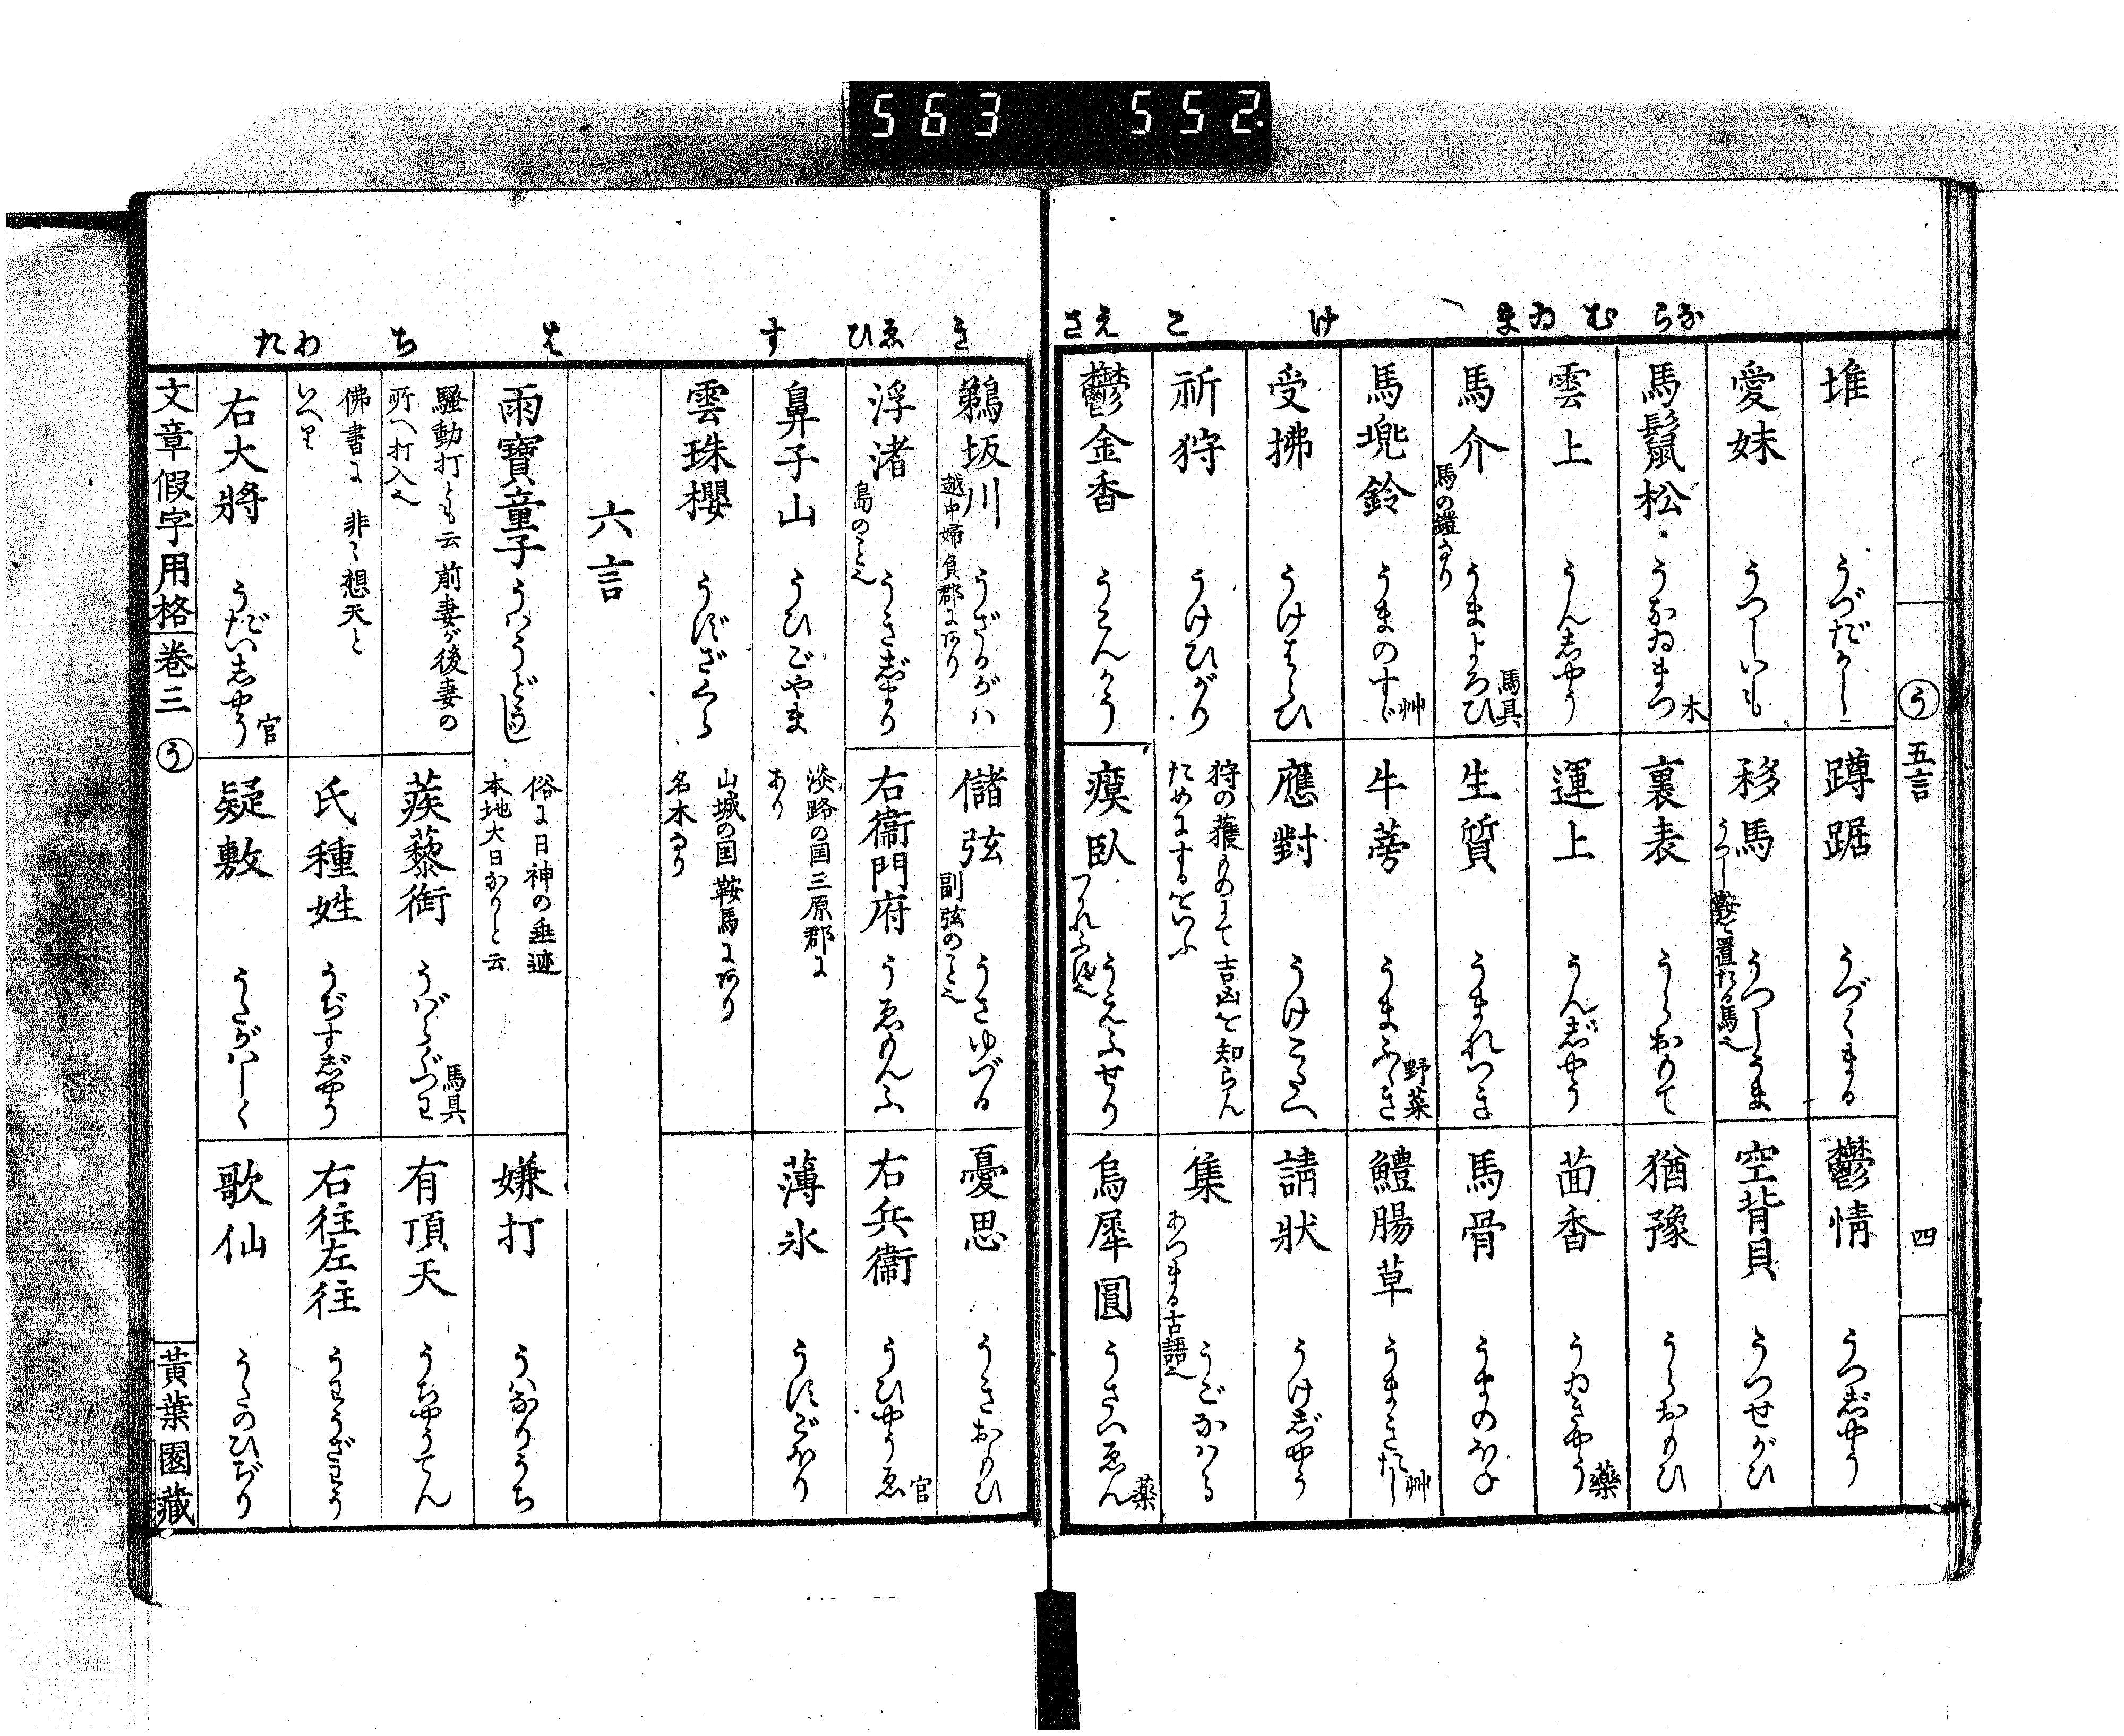 563 552
なら む ゐま け こ えさ
う 五言 四
堆 うづだかし
蹲踞 うづくまる
鬱情 うつじやう
愛妹 うつしいも
移馬 うつしうま
うつし鞍を置たる馬也
空背貝 うつせがひ
馬鬣松 うなゐまつ 木
裏表 うらおもて
猶豫 うらおもひ
雲上 うんしやう
運上 うんじやう
茴香 うゐきやう 藥
馬介 うまよろひ 馬具
馬の鎧なり
生質 うまれつき
馬骨 うまのほね
馬兜鈴 うまのすゞ 艸
牛蒡 うまふゞき 野菜
鱧腸草 うまきたし 艸
受拂 うけはらひ
應對 うけこたへ
請狀 うけじやう
祈狩 うけひがり
狩の獲ものにて吉凶を知らん
ためにするをいふ
集 うごなはる
あつまる古語也
鬱金香 うこんかう
瘼臥 うえふせり
つかれふす也
烏犀圓 うさいゑん 藥
き ゑひ す は ち わた
鵜坂川 うざるがハ
越中婦負郡にあり
儲弦 うさゆづる
副弦のこと也
憂思 うきおもひ
浮渚 うきじまり
島のこと也
右衞門府 うゑもんふ
右兵衞 うひやうゑ 官
鼻子山 うひごやま
淡路の国三原郡に
あり
薄氷 うすごほり
雲珠櫻 うずざくら
山城の国鞍馬にあり
名木なり
六言
雨寶童子 うハうどうじ
俗に日神の垂迹
本地大日なりと云
嫌打 うハなりうち
騷動打とも云前妻が後妻の
所へ打入也
蒺藜銜 うバらぐつわ 馬具
有頂天 うちやうてん
佛書に非々想天と
いへり
氏種姓 うぢすじやう
右往左往 うわうざわう
右大將 うだいしやう 官
疑敷 うたがハしく
歌仙 うたのひぢり
文章假字用格 卷三 う 黃葉園藏